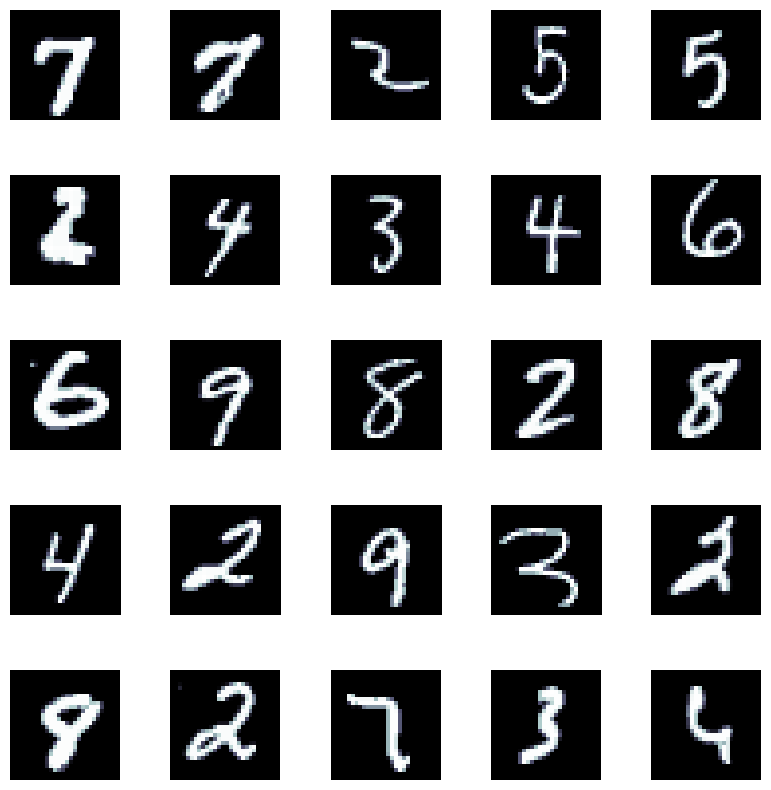 7 7 2 5 5
2 4 3 4 6
6 9 8 2 8
4 2 9 3 2
8 2 7 3 4